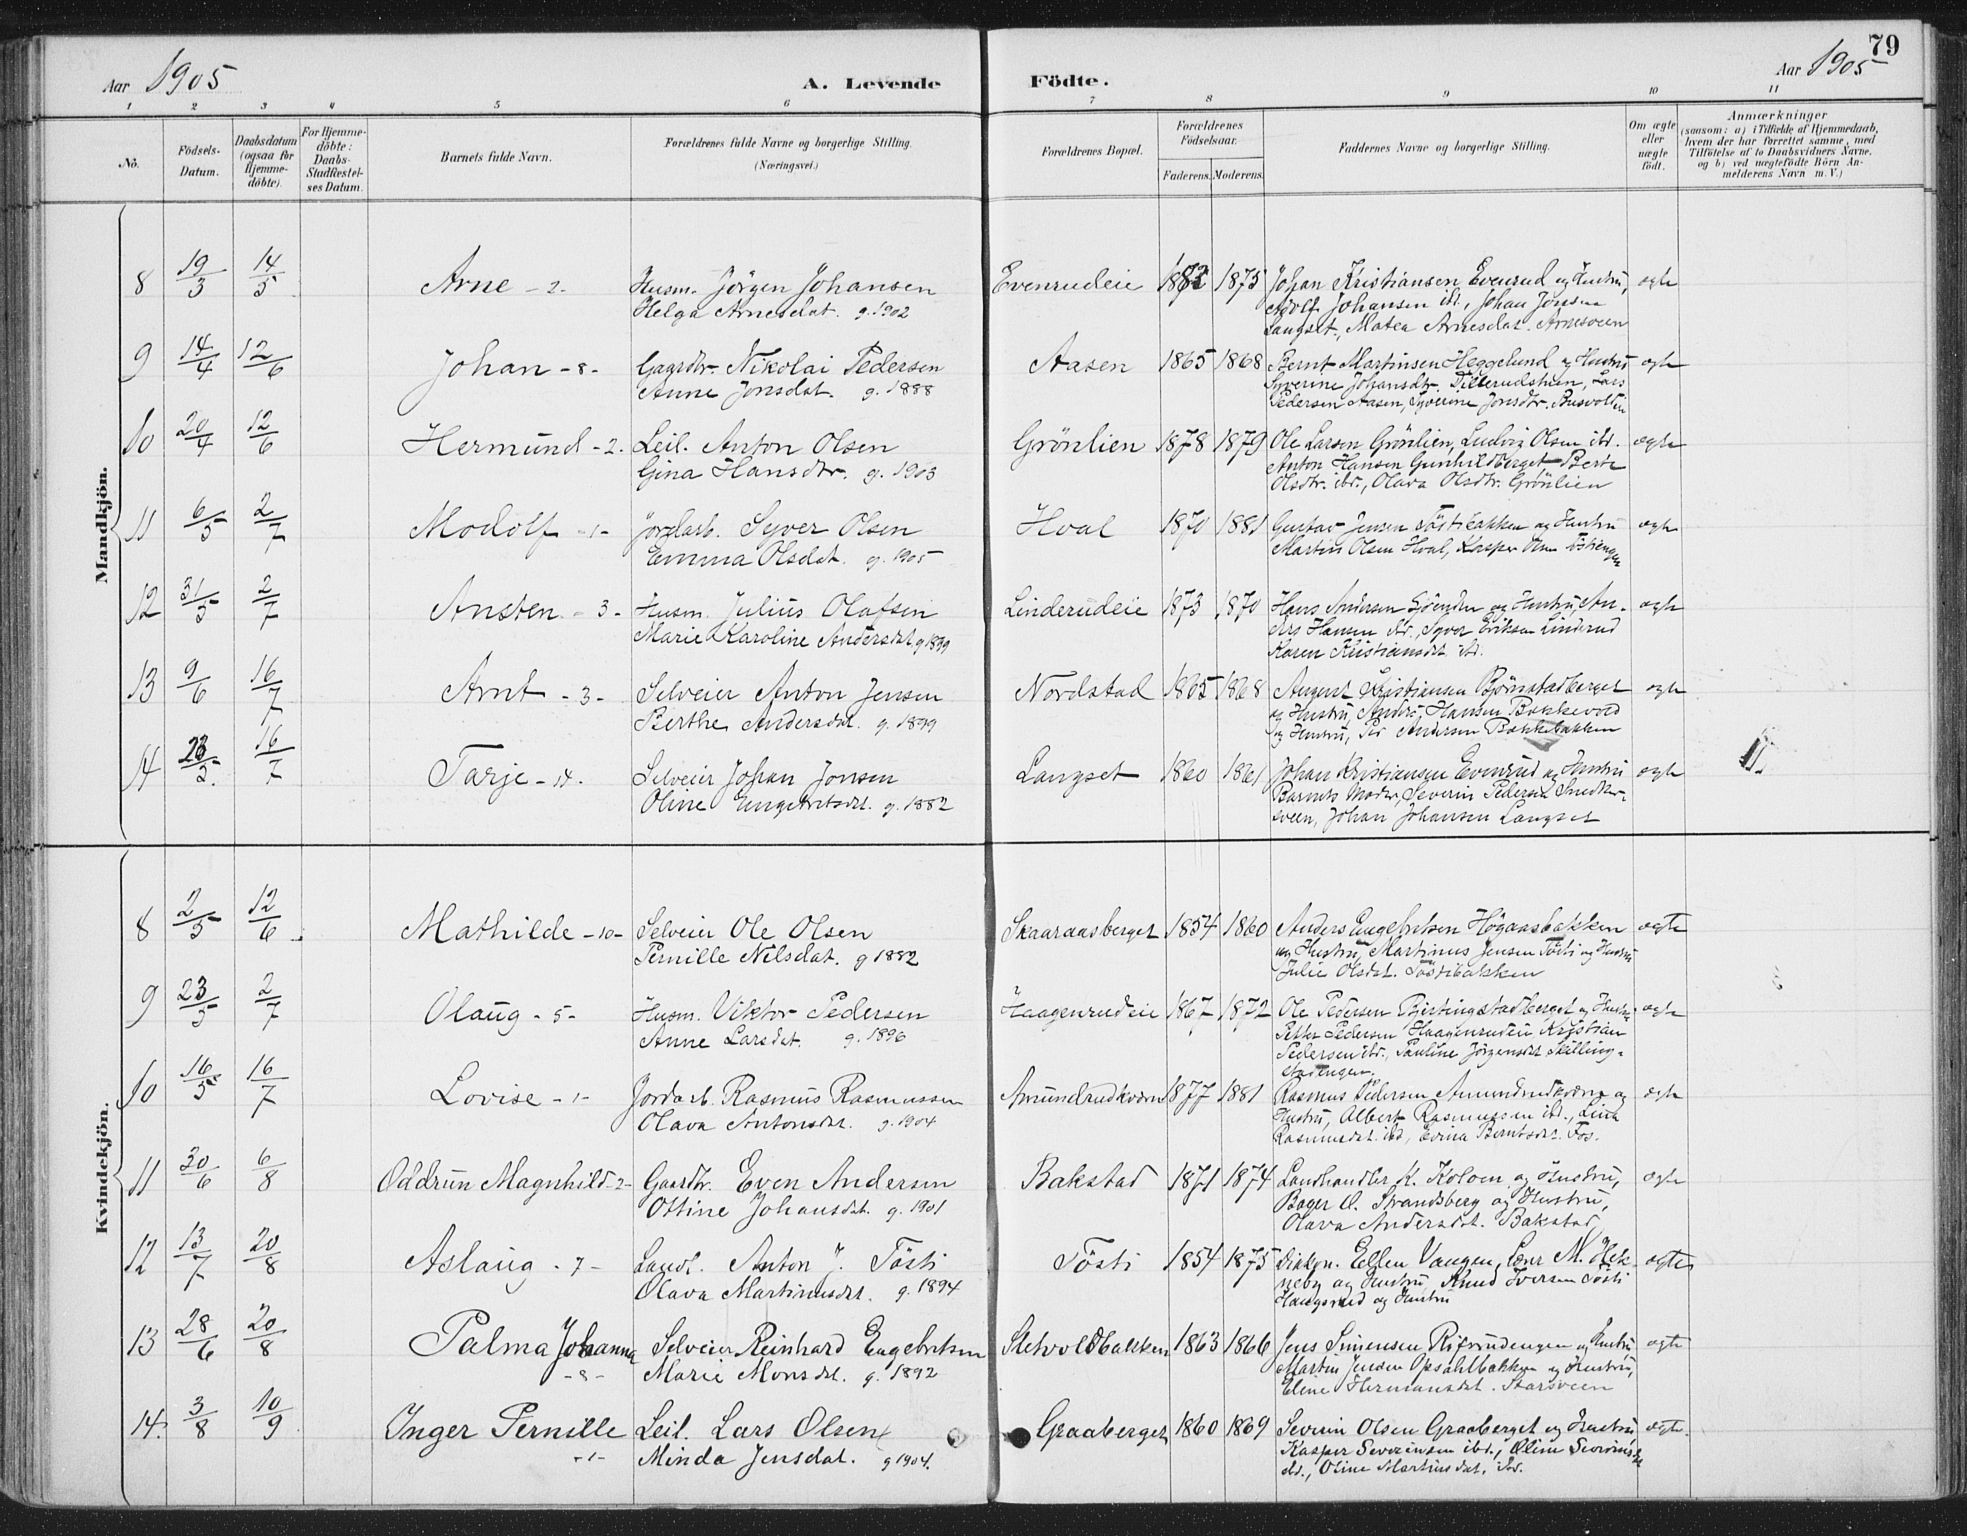 79
Aar 1905
A. Levende Födte.
Aar 1905
1 2 3 4 5 6 7 8 9 10 11
No.
Födsels-Datum.
Daabsdatum (ogsaa for Hjemme-döbte).
For Hjemme-döbte: Daabs-Stadfæstel-ses Datum.
Barnets fulde Navn.
Forældrenes fulde Navne og borgerlige Stilling.
(Næringsvei.)
Forældrenes Bopæl.
Forældrenes Födselsaar.
Faderens. Moderens.
Faddernes Navne og borgerlige Stilling.
Om ægte eller uægte födt.
Anmærkninger
(saasom: a) i Tilfælde af Hjemmedaab,
hvem der har forrettet samme, med
Tilföielse af to Daabsvidners Navne,
og b) ved uægtefödte Börn An-
melderens Navn m. V.)
Mandkjön.
8 19/3 14/5 Arne - 2 - Husm. Jörgen Johansen Evenrudeie 1875 Johan Kristiansen Evenrud og Hustru, ægte
Helga Arnesdat. g. 1902 Adolf Johansen ibd., Johan Jonsen
Langset, Matea Arnesdat. Arnesveen
9 14/4 12/6 Johan - 8 - Gaardbr. Nikolai Pedersen Aasen 1865 1868 Bernt Martinsen Heggelund og Hustru ægte
Anne Jonsdat. g. 1888 Syverine Johansdtr. Lars
Pedersen Aasen, Syverine Jonsdtr.
10 20/4 12/6 Hermund - 2. Leil. Anton Olsen Grönlien 1878 1879 Ole Larsen Grönlien, Ludvig Olsen ibd. ægte
Gina Hansdtr. g. 1903 Anton Hansen Gunhildberget Berte
Olsdtr. ibd., Olava Olsdtr. Grönlien
11 6/5 2/7 Modolf - 1 - Jordarb. Syver Olsen Hval 1870 1881 Gustav Jensen Töstibakken og Hustru ægte
Emma Olsdat. g. 1905 Martin Olsen Hval, Kasper
12 31/5 2/7 Ansten - 3 - Husm. Julius Olafsen Linderudeie 1873 1870 Hans Andersen og Hustru, An-
Marie Karoline Andersdat. g 1899 ders Hansen ibd., Syver Eriksen Linderud
Karen Kristiansdt. ibd.
13 9/6 16/7 Arnt - 3 - Selveier Anton Jensen Nordstad 1865 1868 August Kristiansen Björnstadberget ægte
Berthe Andersdat. g. 1899 og Hustru, Andr. Hansen
og Hustru, Andersen Bakkebakken
14 16/7 Tarje - 14 - Selveier Johan Jonsen Langset 1860 1861 Johan Kristiansen Evenrud og Hustru ægte
Oline Engebretsdat. g. 1882 Barnets Moder, Severin Pedersen Snedker-
sveen, Johan Johansen Langset
Kvindekjön.
8 2/5 12/6 Mathilde - 10 - Selveier Ole Olsen Skaaraasberget 1854 1860 Anders Engebretsen Högaasbakken ægte
Pernille Nilsdat. g 1882 og Hustru, Martinus Jensen Tösti og Hustru
Julie Olsdat. Töstibakken
9 23/5 2/7 Olaug - 5 - Husm. Viktor Pedersen Haagenrudeie 1867 1872 Ole Pedersen Bjertingstadberget og Hustru ægte
Anne Larsdat. g. 1896 Petter Pedersen Haagenrudeie Kristian
Pedersen ibd., Pauline Jörgensdt. Skilling-
stadengen.
10 16/5 16/7 Lovise - 1 - Jordarb. Rasmus Rasmussen Amundrudkværn 1877 1881 Rasmus Pedersen Amundrudkværn og ægte
Olava Antonsdat. g. 1904 Hustru, Albert Rasmussen ibd., Lina
Rasmusdat. ibd, Evina Berntsdt. Fos.
11 30/6 6/8 Oddrun Magnhild - 2 - Gaardbr. Even Andersen Bakstad 1871 1874 Landhandler K. Koloen og Hustru, ægte
Ottine Johansdat. g. 1901 Bager O. Strandsberg og Hustru,
Olava Andersdt. Bakstad
12 13/7 20/8 Aslaug - 7 - Landh. Anton J. Tösti Tösti 1854 1875 Diakon. Ellen Vangen, Lærer M. ægte
Olava Martinusdat. g. 1894 og Hustru, Knud Iversen Tösti
Haugsrud og Hustru
13 28/6 20/8 Palma Johanna - 8 - Selveier Reinhard Engebretsen Sletvoldbakken 1863 1866 Jens Simensen og Hustru ægte
Marie Monsdat. g. 1892 Martin Jensen Opsahlbakken og Hustru,
Eline Hermansdat. Starsveen
14. 3/8 10/9 Inger Pernille - 1 - Leil. Lars Olsen Graaberget 1860 1869 Severin Olsen Graaberget og Hustru ægte.
Minda Jensdat. g 1904. Kasper Severinsen ibd., Oline
ibd., Oline Martinsdat. ibd.